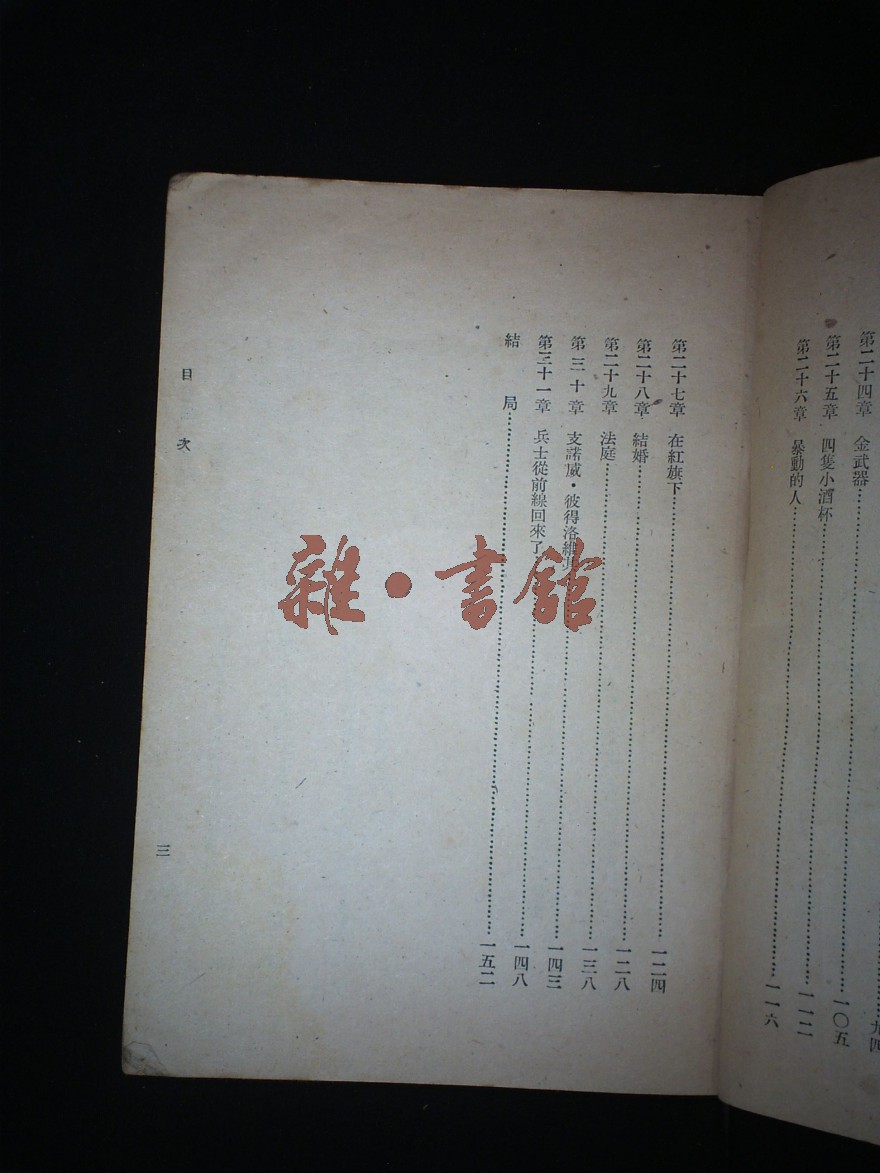 九四
第二十四章 金武器……一〇五
第二十五章 四隻小酒杯……一一二
第二十六章 暴動的人……一一六
第二十七章 在紅旗下……一二四
第二十八章 結婚……一二八
第二十九章 法庭……一三八
第三十章 支諾威·彼得洛維……一四三
第三十一章 兵士從前線回來了……一四八
結局……一五二
目次
三
雜·書館